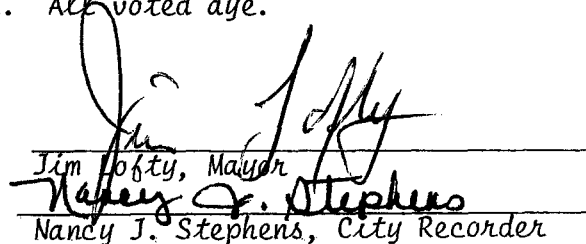 . All voted aye.
Jim Lofty
Jim Lofty, Mayor
Nancy J. Stephens
Nancy J. Stephens, City Recorder